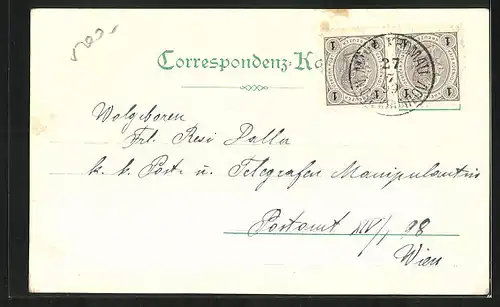 Correspondenz-Ka
1 1 1 1
27
Wolgeboren
Frl. Resi Dalla
k. k. Post- u. Telegrafen Manipulantin
Postamt XIV/1, 98
Wien